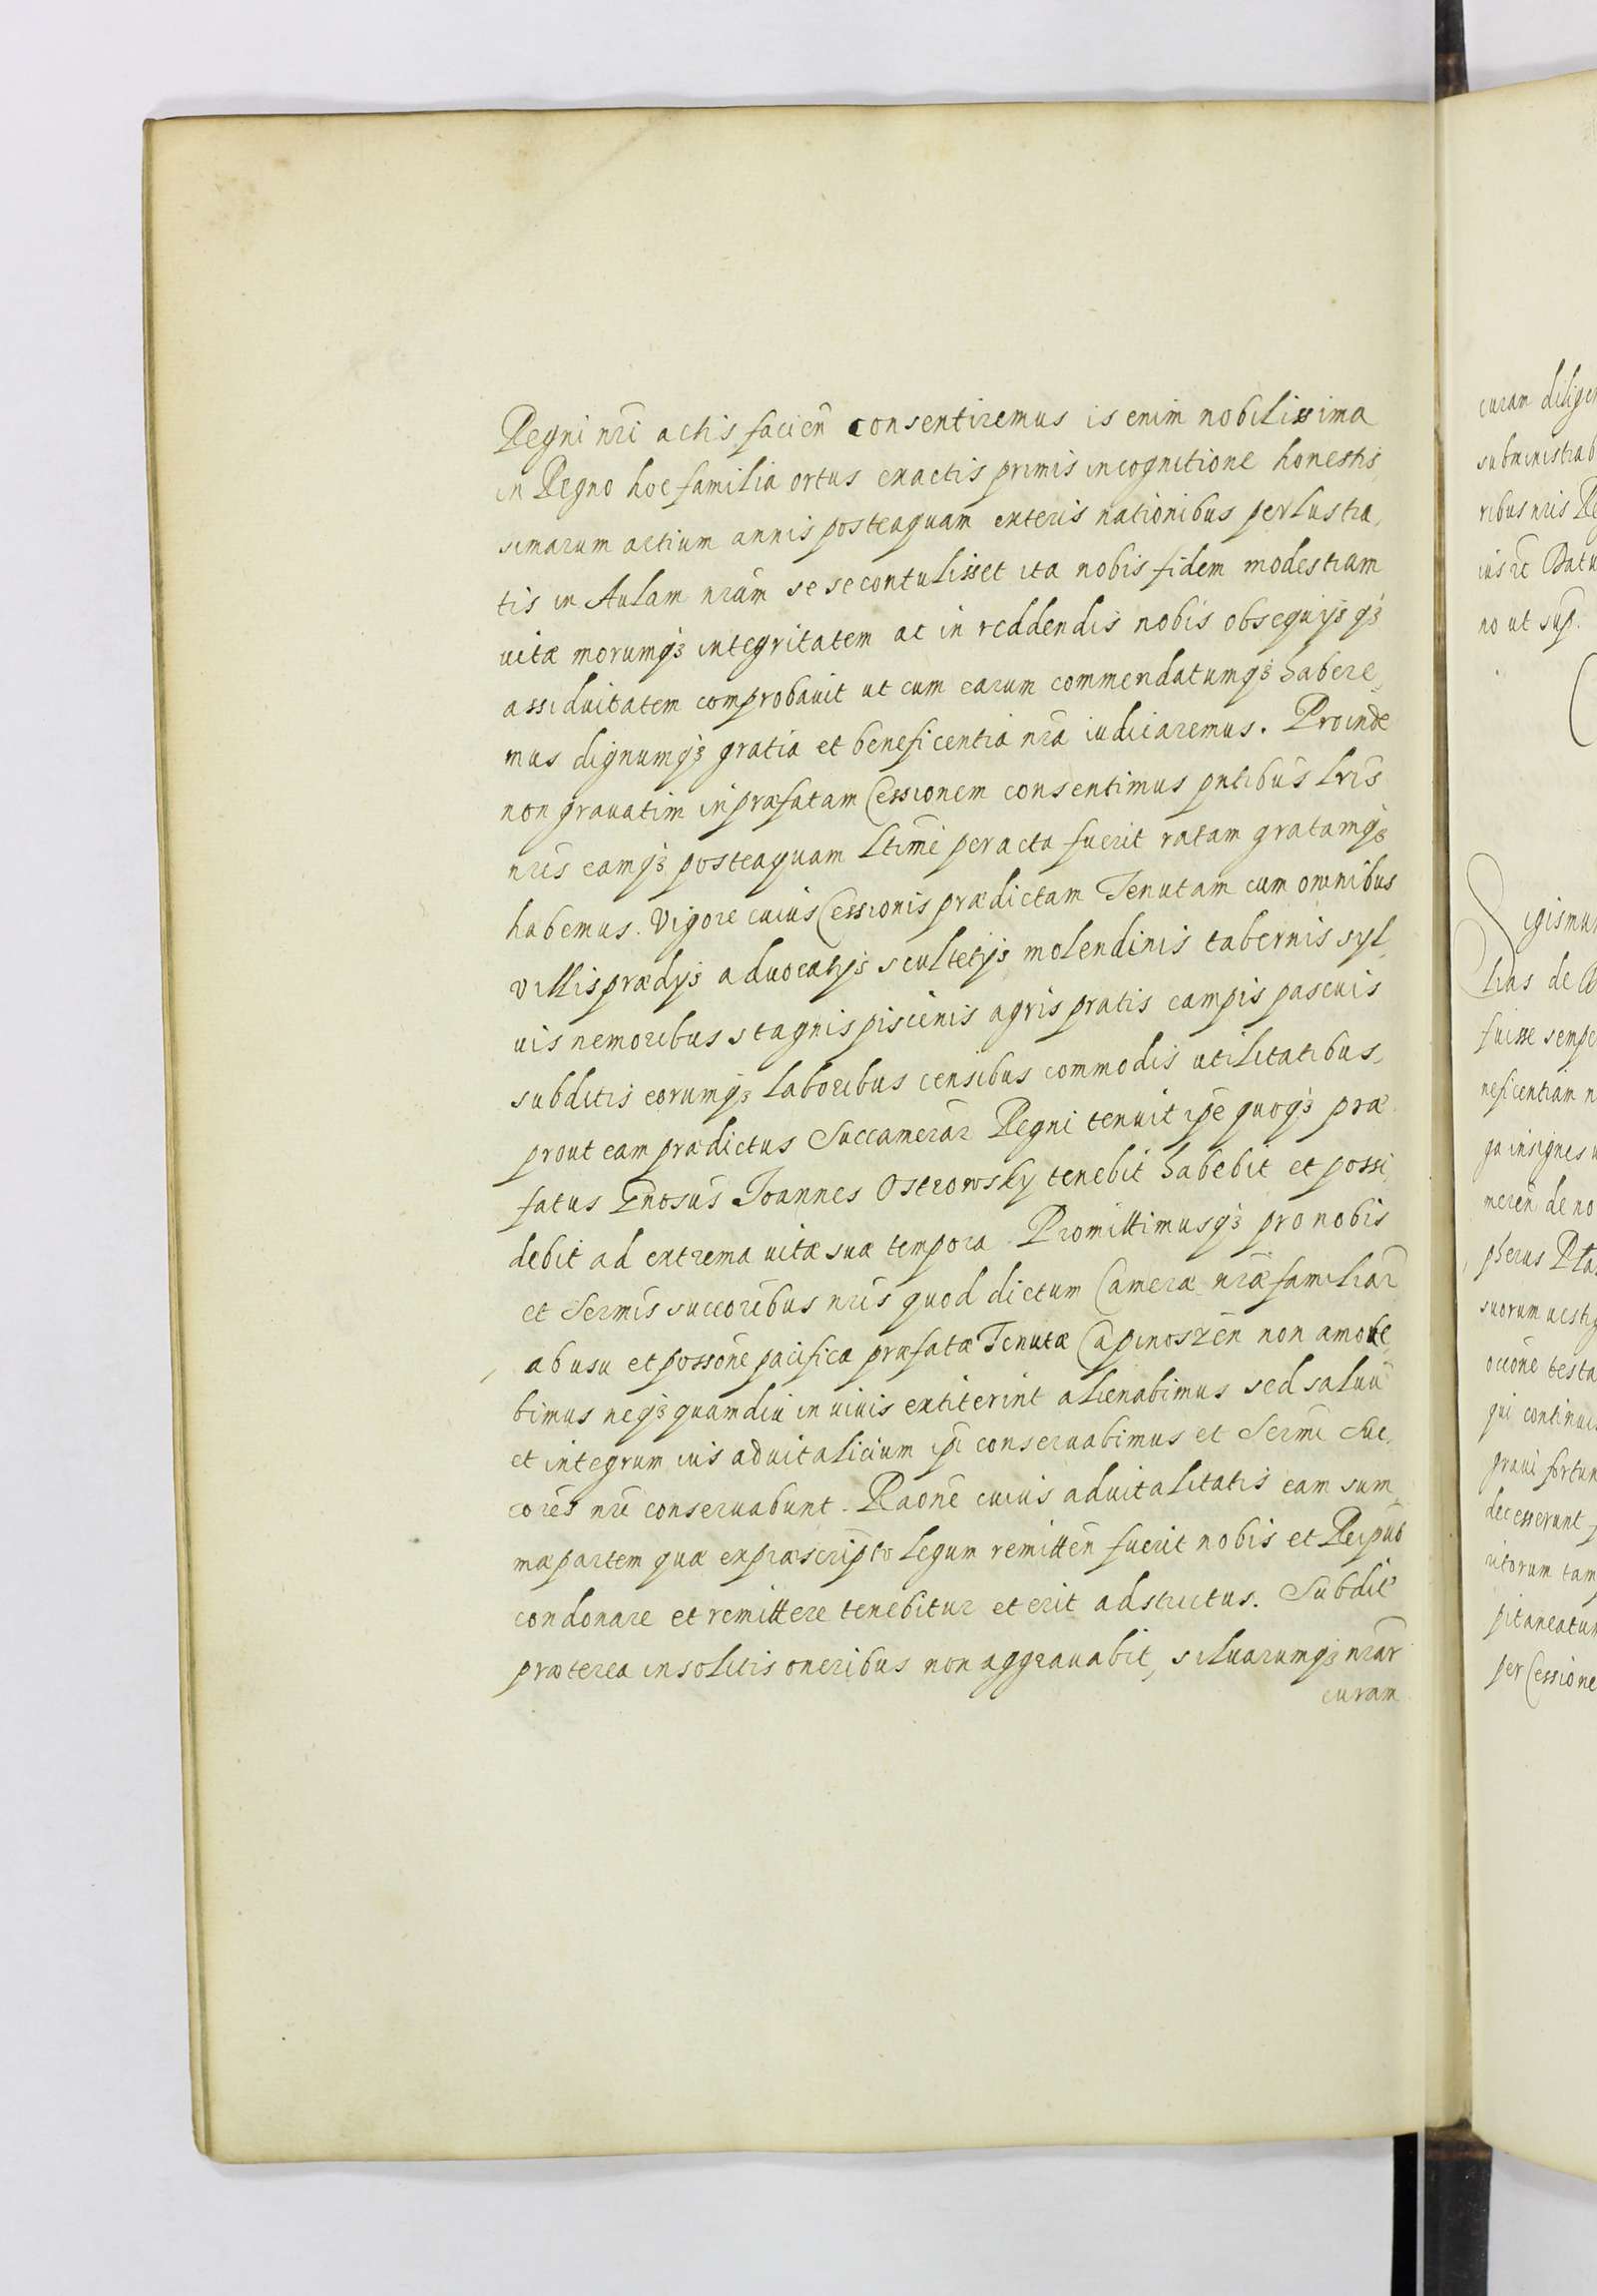 Regni nr̃i actis facien̄ consentiremus is enim nobilissima
in Regno hoc familia ortus exactis primis in cognitione honestis,
simarum artium annis posteaquam exteris nationibus perlustra,
tis in Aulam nr̃am se se contulisset ita nobis fidem modestiam
uitæ morumqȝ integritatem ac in reddendis nobis obsequijs qȝ
assiduitatem comprobauit ut cum carum commendatumqȝ habere,
mus dignumqȝ gratia et beneficentia nr̃a iudicaremus. Proinde
non grauatim in præfatam Cessionem consentimus pn̄tibus lr̃is
nr̃is eamqȝ posteaquam lt̄ime peracta fuerit ratam gratamqȝ
habemus. Vigore cuius Cessionis prædictam Tenutam cum omnibus
villis prædijs aduocatijs scultetijs molendinis tabernis syl,
uis nemoribus stagnis piscinis agris pratis campis pascuis
subditis eorumqȝ laboribus censibus commodis utilitatibus,
prout eam prædictus Succamerar̄ Regni tenuit ip̄e quoqȝ præ
fatus Gn̄osus Joannes Ostrowsky tenebit habebit et possi,
debit ad extrema uitæ suæ tempora. Promittimusqȝ pro nobis
et Serm̄is succoribus nr̃is quod dictum Cameræ nr̃æ familiar̄
ab usu et posson̄e pacifica præfatæ Tenutæ Capinoszen̄ non amoue,
bimus neqȝ quamdiu in uiuis extiterint alienabimus sed saluū
et integrum ius aduitalicium ip̄i conseruabimus et Serm̄i Suc,
cores nr̃i conseruabunt. Raōne cuius aduitalitatis eam sum,
mæ partem quæ ex præscripto legum remitten̄ fuerit nobis et Reipub
condonare et remittere tenebitur et erit adstrictus. Subdit̄
præterea insolitis oneribus non aggrauabit, siluarumqȝ nr̃ar̄
curam
curam diligen
subministrab
ribus nr̃is Re
ius r̄c Datu
no ut sup.
Sigismun
lias de
fuisse sempe
neficentiam n
ga insignes u
meren̄ de no
pherus
suorum uestig
ocione testa
qui continuis
graui fortun
decesserunt
ritorum tam
pitaneatum
per Cessione